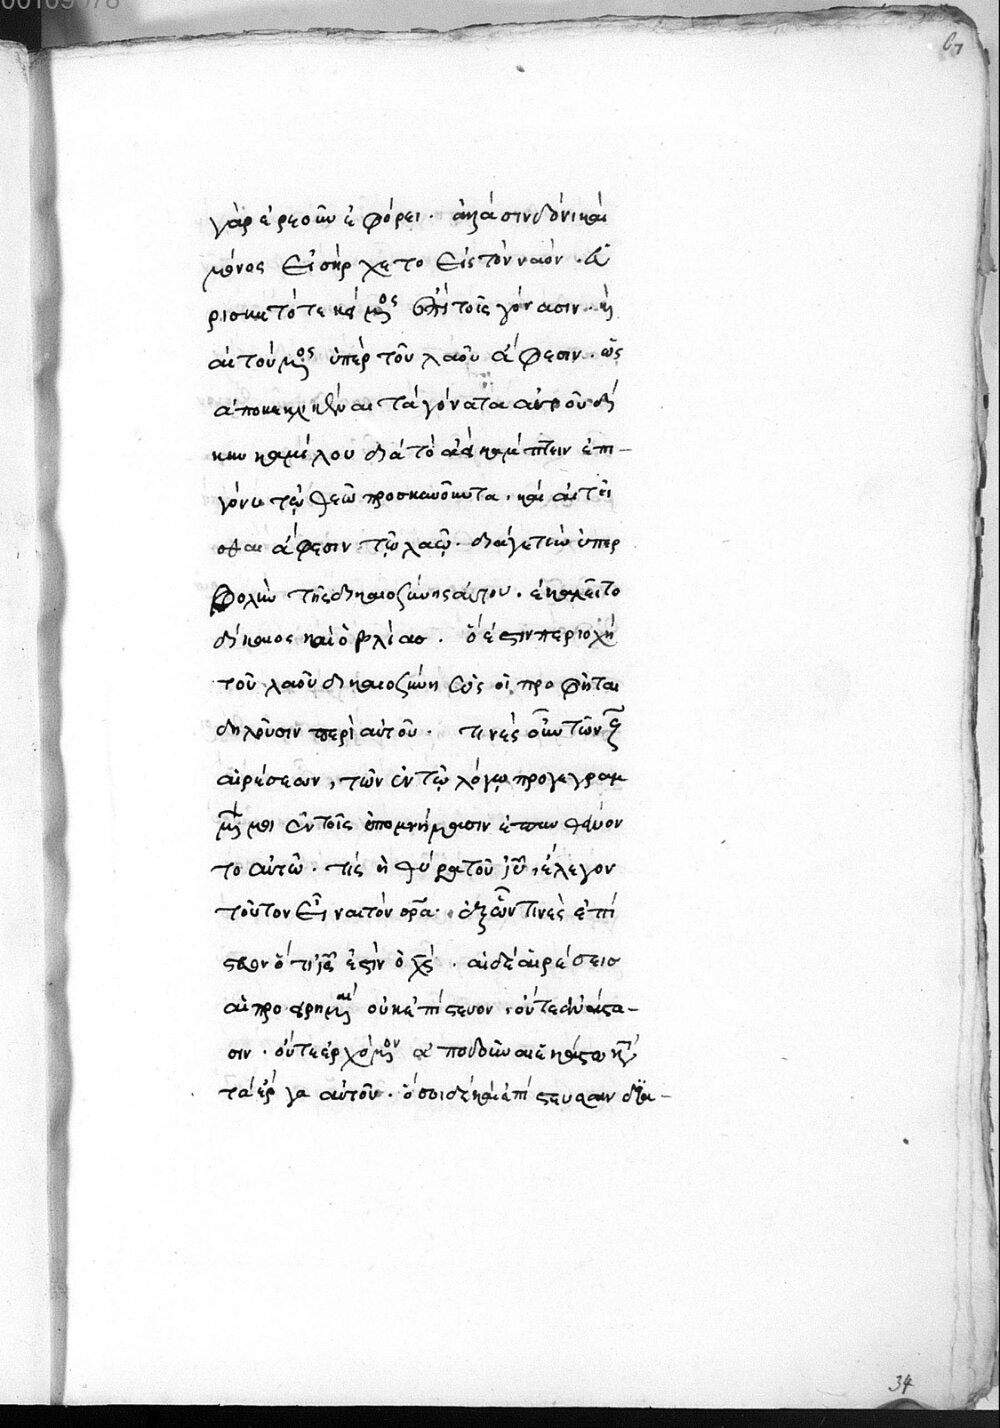 67
γὰρ ἐρεοῦν ἐφόρει. ἀλλὰ σινδόνι καὶ
μόνος εἰσήρχετο εἰς τὸν ναόν. εὑ
ρίσκετό τε κείμενος ἐπὶ τοῖς γόνασιν. καὶ
αἰτούμενος ὑπὲρ τοῦ λαοῦ ἄφεσιν. ὡς
ἀπεσκληκέναι τὰ γόνατα αὐτοῦ δί
κην καμήλου διὰ τὸ ἀεὶ κάμπτειν ἐπι-
γόνυ τῷ θεῶ προσκυνοῦντα. καὶ αἰτεῖ
σθαι ἄφεσιν τῷ λαῷ. διάγε τὴν ὑπερ
βολὴν τῆς δικαιοσύνης αὐτου. ἐκαλεῖτο
δίκαιος καὶ ὀβλίας. ὅ ἐστιν περιοχὴ
τοῦ λαοῦ δικαιοσύνη ὡς οἱ προφῆται
δηλοῦσιν περὶ αὐτοῦ. τινὲς οὖν τῶν ζ
αἱρέσεων, τῶν ἐν τῷ λόγῳ προγεγραμ
μένων μοι ἐν τοῖς ὑπομνήμασιν ἐπυνθάνον
το αὐτῶ. τίς ἡ θύρα τοῦ ἰῦ, ἔλεγον
τοῦτον εἶναι τὸν σρα. ἐξ ὧν τινὲς ἐπί
στευσαν ὅτι ἰς ἐστὶν ὁ χς. αἱ δὲ αἱρέσεις
αἱ προειρημέναι οὐκ ἐπίστευον. οὔτε ἀνάστα-
σιν. οὔτε ἐρχόμενον ἀποδοῦναι ἑκάστω κατὰ
τὰ ἔργα αὐτοῦ. ὅσοι δὲ καὶ ἐπίστευσαν δϊα-
34